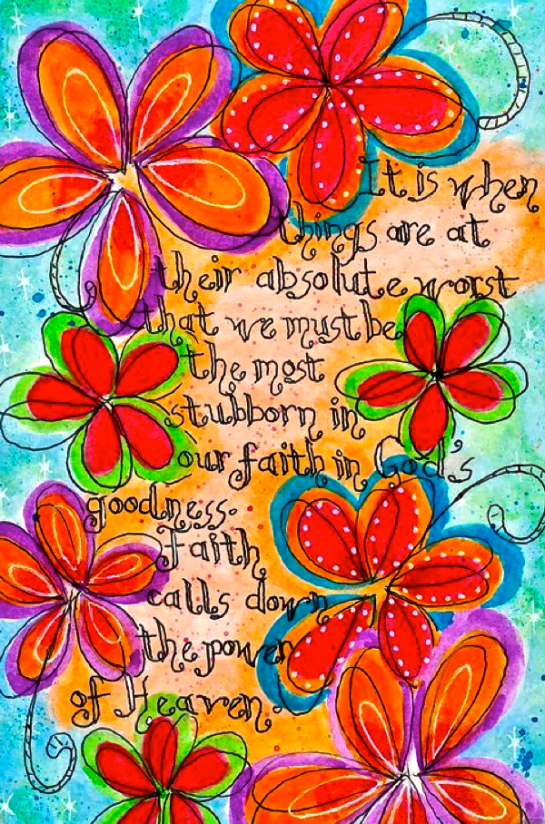 It is when
things are at
their absolute worst
that we must be
the most
stubborn in
our faith in God's
goodness.
Faith
calls down
the power
of Heaven.